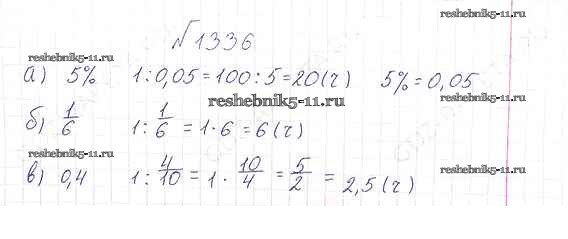 №1336
reshebnik5-11.ru
reshebnik5-11.ru
а) 5% 1:0,05=100:5=20(ч) 5%=0,05
reshebnik5-11.ru
reshebnik5-11.ru
б) 1/6 1: 1/6 = 1·6 = 6(ч)
reshebnik5-11.ru
в) 0,4 1: 4/10 = 1· 10/4 = 5/2 = 2,5(ч)
reshebnik5-11.ru